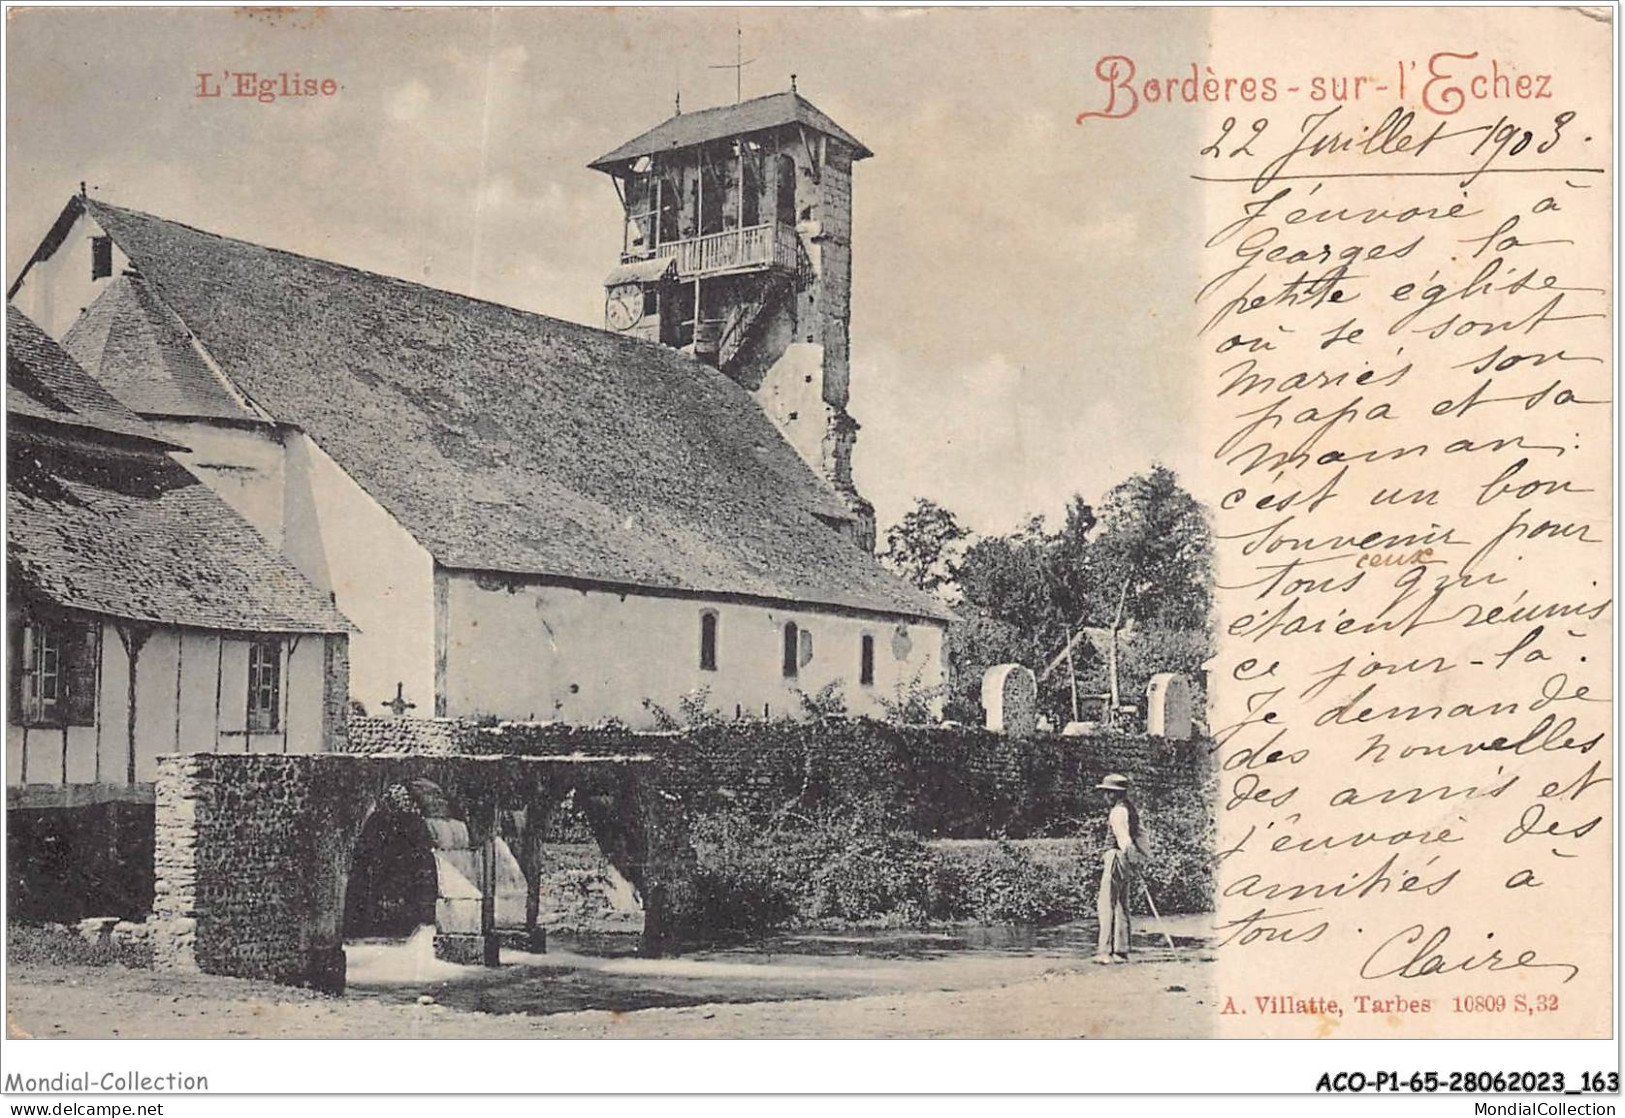 L'Eglise
Bordères-sur-l'Echez
22 Juillet 1903.
J'envoie à
Georges la
petite église
où se sont
mariés son
papa et sa
maman.
c'est un bon
souvenir pour
tous ceux qui
étaient réunis
ce jour-là.
Je demande
des nouvelles
des amis et
j'envoie des
amitiés à
tous.
Claire
A. Villatte, Tarbes 10809 S,32
Mondial-Collection
ACO-P1-65-28062023_163
mondial-collection.delcampe.net
MondialCollection